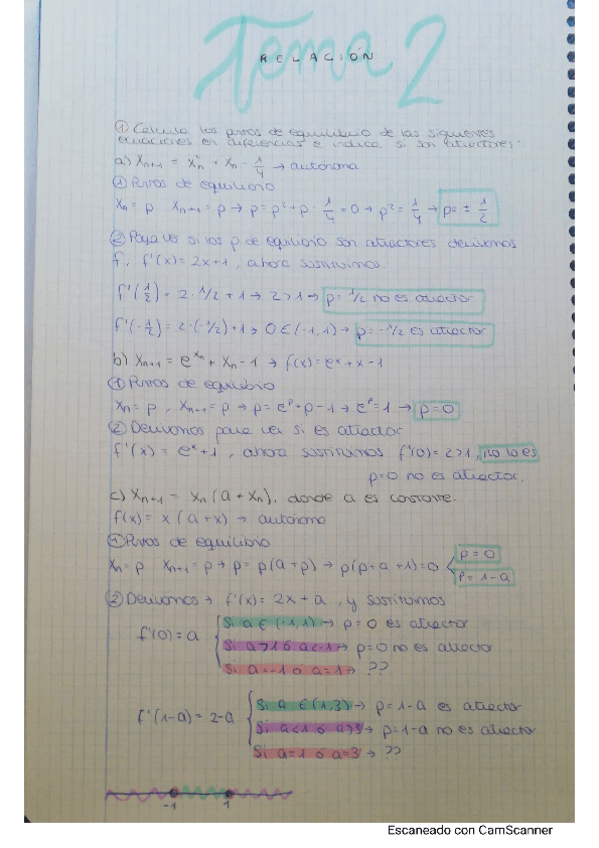 Tema 2
RELACIÓN
① Calcula los puntos de equilibrio de las siguientes
ecuaciones en diferencias e indica si son atractores:
a) Xn+1 = Xn² + Xn - 1/4 → autónoma
① Puntos de equilibrio
Xn = p Xn+1 = p → p = p² + p - 1/4 = 0 → p² = 1/4 → p = ± 1/2
② Para ver si los p. de equilibrio son atractores derivamos
f, f'(x) = 2x+1, ahora sustituimos.
f'(1/2) = 2·1/2 + 1 → 2 > 1 → p = 1/2 no es atractor
f'(-1/2) = 2·(-1/2)+1 → 0 ∈ (-1,1) → p = -1/2 es atractor
b) Xn+1 = e^Xn + Xn - 1 → f(x) = e^x + x - 1
① Puntos de equilibrio
Xn = p, Xn+1 = p → p = e^p + p - 1 → e^p = 1 → p = 0
② Derivamos para ver si es atractor
f'(x) = e^x + 1, ahora sustituimos f'(0) = 2 > 1, no lo es
p=0 no es atractor.
c) Xn+1 = Xn (a + Xn), donde a es constante.
f(x) = x (a + x) → autónoma
① Puntos de equilibrio
Xn = p Xn+1 = p → p = p(a + p) → p(p + a + 1) = 0 p = 0
p = 1 - a
② Derivamos → f'(x) = 2x + a, y sustituimos
f'(0) = a Si a ∈ (-1,1) → p = 0 es atractor
Si a > 1 ó a < -1 → p = 0 no es atractor
Si a = -1 ó a = 1 → ??
f'(1-a) = 2-a Si a ∈ (1,3) → p = 1-a es atractor
Si a < 1 ó a > 3 → p = 1-a no es atractor
Si a = 1 ó a = 3 → ??
-1 1
Escaneado con CamScanner